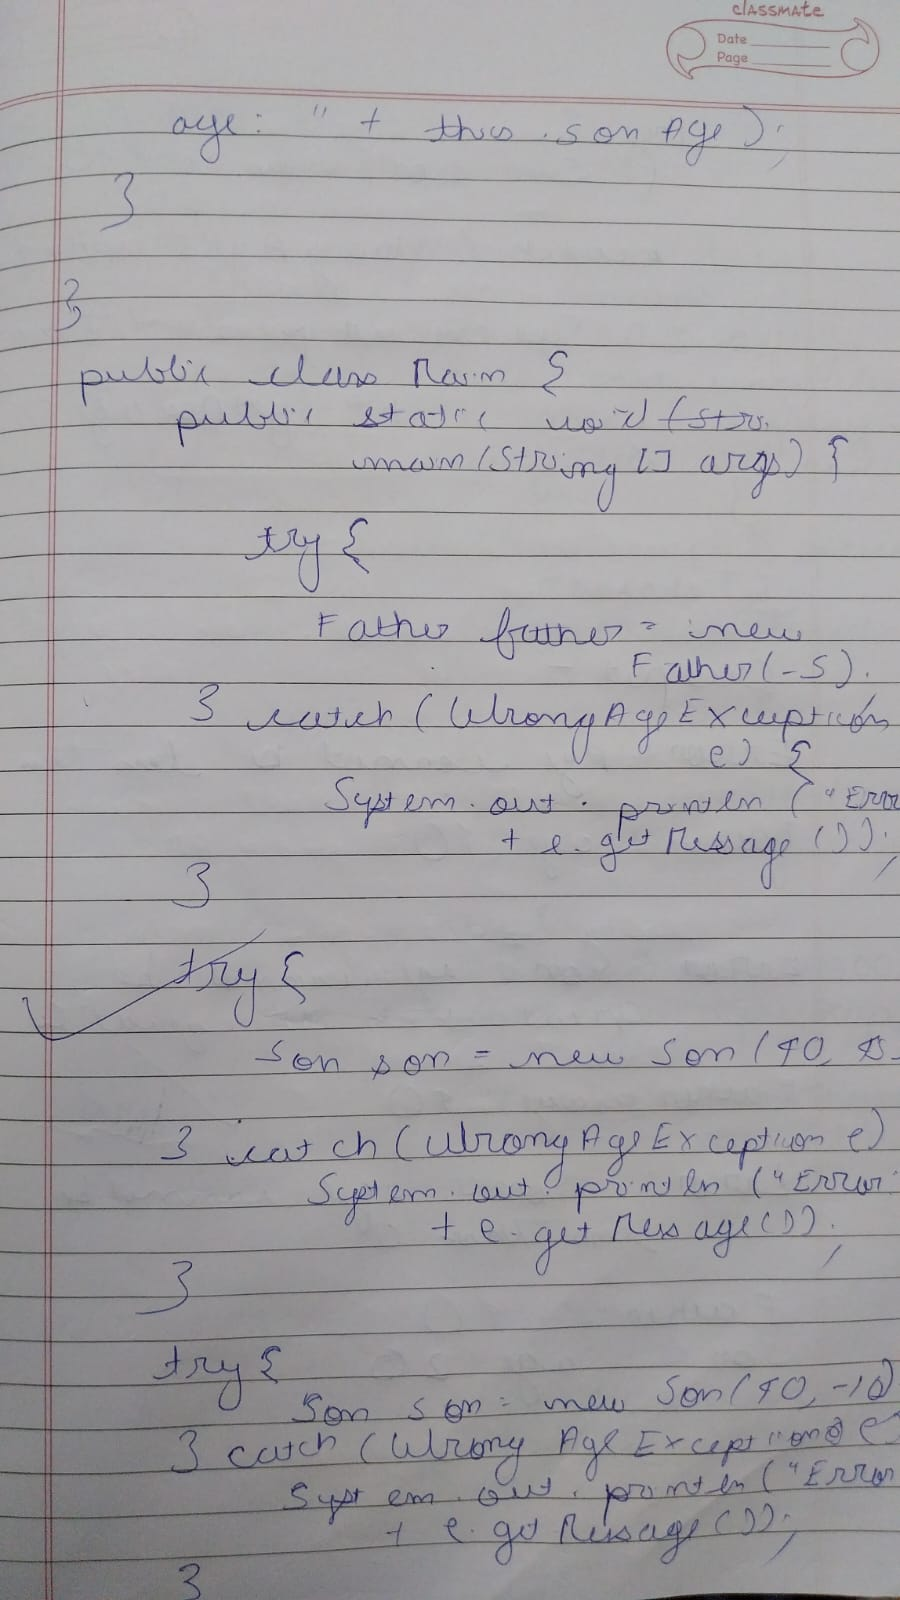 classmate
Date
Page
age: " + this.sonAge);
}
}
public class Main {
public static void
main(String[] args) {
try {
Father father = new
Father(-5).
} catch (WrongAgeException
e) {
System.out.println ("Error
+ e.getMessage());
}
try {
Son son = new Son(40,
} catch (WrongAgeException e)
System.out.println ("Error:
+ e.getMessage());
}
try {
Son son = new Son(40, -10)
} catch (Wrong Age Exception e)
System.out.println ("Error
+ e.getMessage());
}